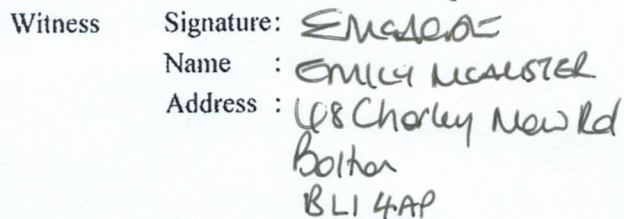 Witness Signature:
Name : EMILY MCALISTER
Address : 68 Chorley New Rd
Bolton
BL1 4AP